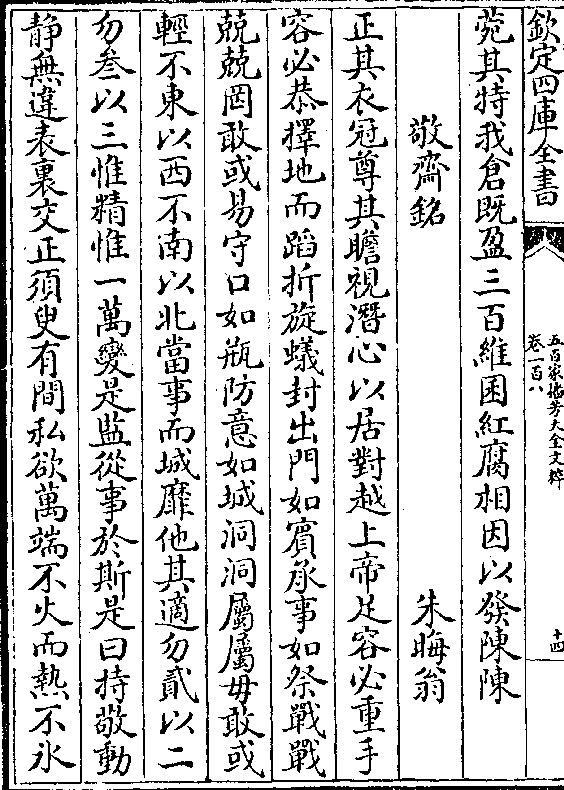 欽定四庫全書
五百家播芳大全文粹
卷一百八
十四
菀其特我倉既盈三百維囷紅腐相因以發陳陳
敬齋銘 朱晦翁
正其衣冠尊其瞻視潛心以居對越上帝足容必重手
容必恭擇地而蹈折旋蟻封出門如賓承事如祭戰戰
兢兢罔敢或易守口如瓶防意如城洞洞屬屬毋敢或
輕不東以西不南以北當事而城靡他其適勿貳以二
勿叁以三惟精惟一萬變是監從事於斯是曰持敬動
静無違表裏交正須臾有間私欲萬端不火而熱不氷